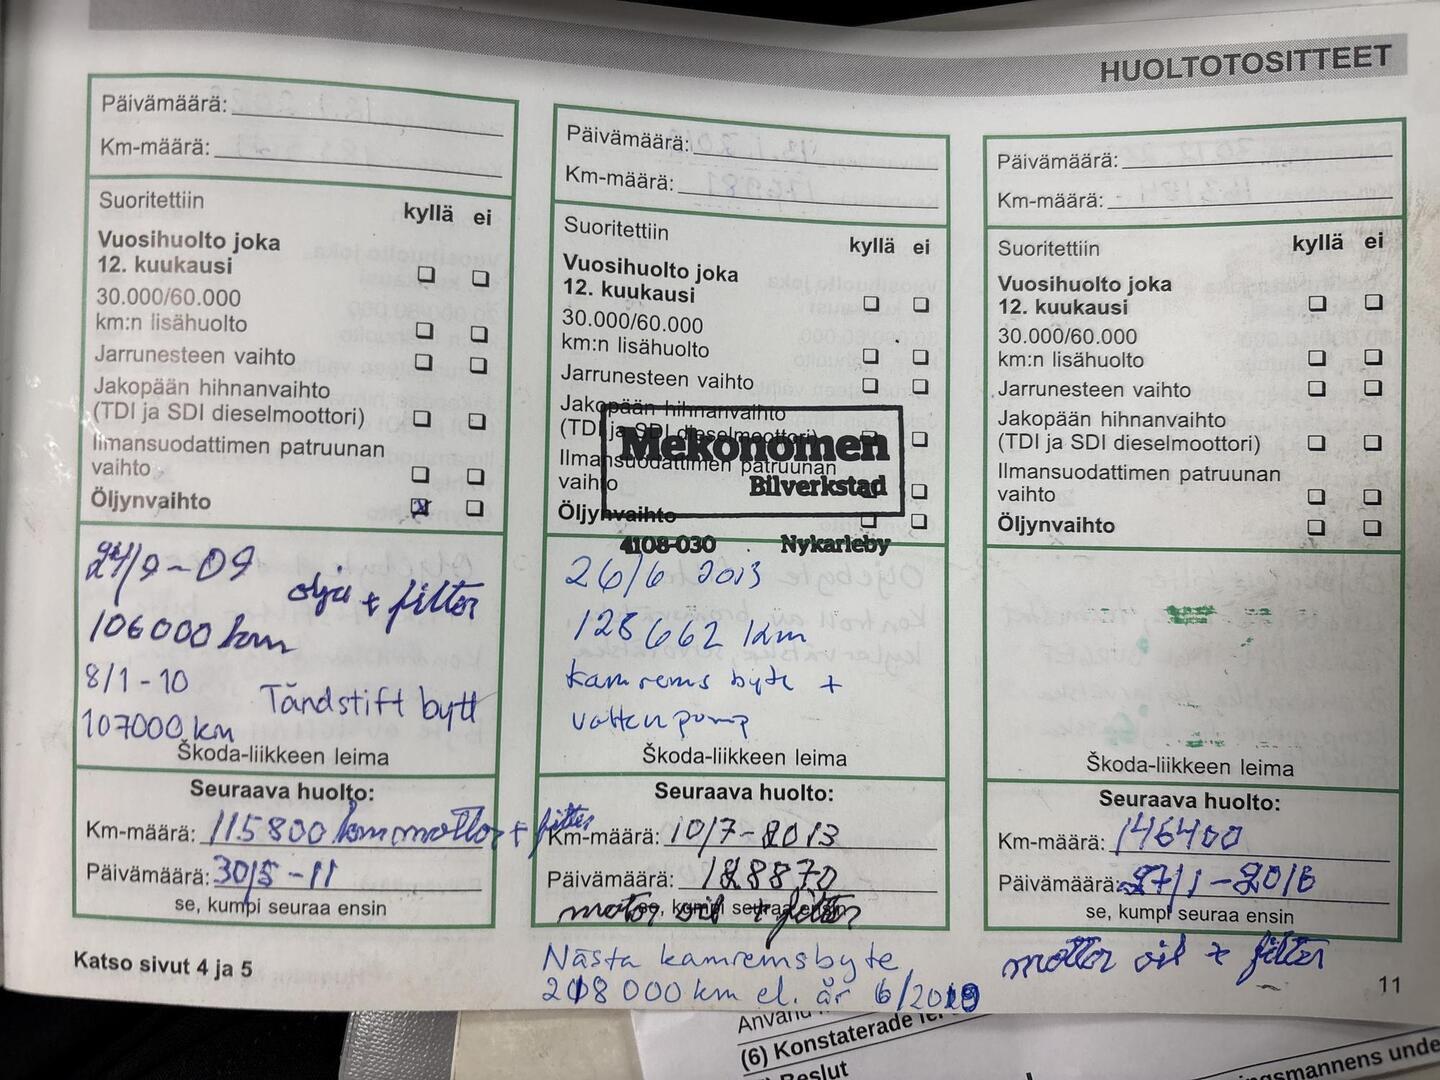 HUOLTOTOSITTEET
Päivämäärä:
Km-määrä:
Suoritettiin
kyllä ei
Vuosihuolto joka
12. kuukausi
30.000/60.000
km:n lisähuolto
Jarrunesteen vaihto
Jakopään hihnanvaihto
(TDI ja SDI dieselmoottori)
Ilmansuodattimen patruunan
vaihto
Öljynvaihto
24/9-09
olja + filter
106000 km
8/1-10
Tändstift bytt
107000 km
Škoda-liikkeen leima
Seuraava huolto:
Km-määrä: 115800 km mottor + filter
Päivämäärä: 30/5-11
se, kumpi seuraa ensin
Katso sivut 4 ja 5
Päivämäärä:
Km-määrä:
Suoritettiin
kyllä ei
Vuosihuolto joka
12. kuukausi
30.000/60.000
km:n lisähuolto
Jarrunesteen vaihto
Jakopään hihnanvaihto
(TDI ja SDI dieselmoottori)
Ilmansuodattimen patruunan
vaihto
Öljynvaihto
Mekonomen
Bilverkstad
4108-030 Nykarleby
26/6 2013
128662 km
kamrems byte +
vattenpump
Škoda-liikkeen leima
Seuraava huolto:
Km-määrä: 10/7-2013
Päivämäärä: 128870
se, kumpi seuraa ensin
motor oil + filter
Nästa kamremsbyte
218 000 km el. år 6/2019
Päivämäärä:
Km-määrä:
Suoritettiin
kyllä ei
Vuosihuolto joka
12. kuukausi
30.000/60.000
km:n lisähuolto
Jarrunesteen vaihto
Jakopään hihnanvaihto
(TDI ja SDI dieselmoottori)
Ilmansuodattimen patruunan
vaihto
Öljynvaihto
Škoda-liikkeen leima
Seuraava huolto:
Km-määrä: 146400
Päivämäärä: 27/1-2016
se, kumpi seuraa ensin
mottor oil + filter
11
(6) Konstaterade
Beslut